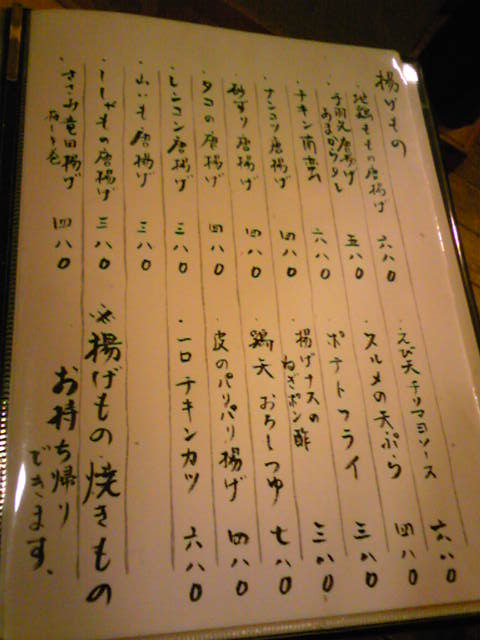 揚げもの
・地鶏ももの唐揚げ 六八〇
・手羽元唐揚げ あまからタレ 五八〇
・チキン南蛮 六八〇
・ナンコツ唐揚げ 四八〇
・砂ずり唐揚げ 四八〇
・タコの唐揚げ 四八〇
・レンコン唐揚げ 三八〇
・山いも唐揚げ 三八〇
・ししゃもの唐揚げ 三八〇
・ささみ竜田揚げ 四八〇
・えび天チリマヨソース 六八〇
・スルメの天ぷら 四八〇
・ポテトフライ 三八〇
・揚げナスのねぎポン酢 三八〇
・鶏天おろしつゆ 七八〇
・皮のパリパリ揚げ 四八〇
・一口チキンカツ 六八〇
※揚げもの・焼きもの
お持ち帰り
できます。